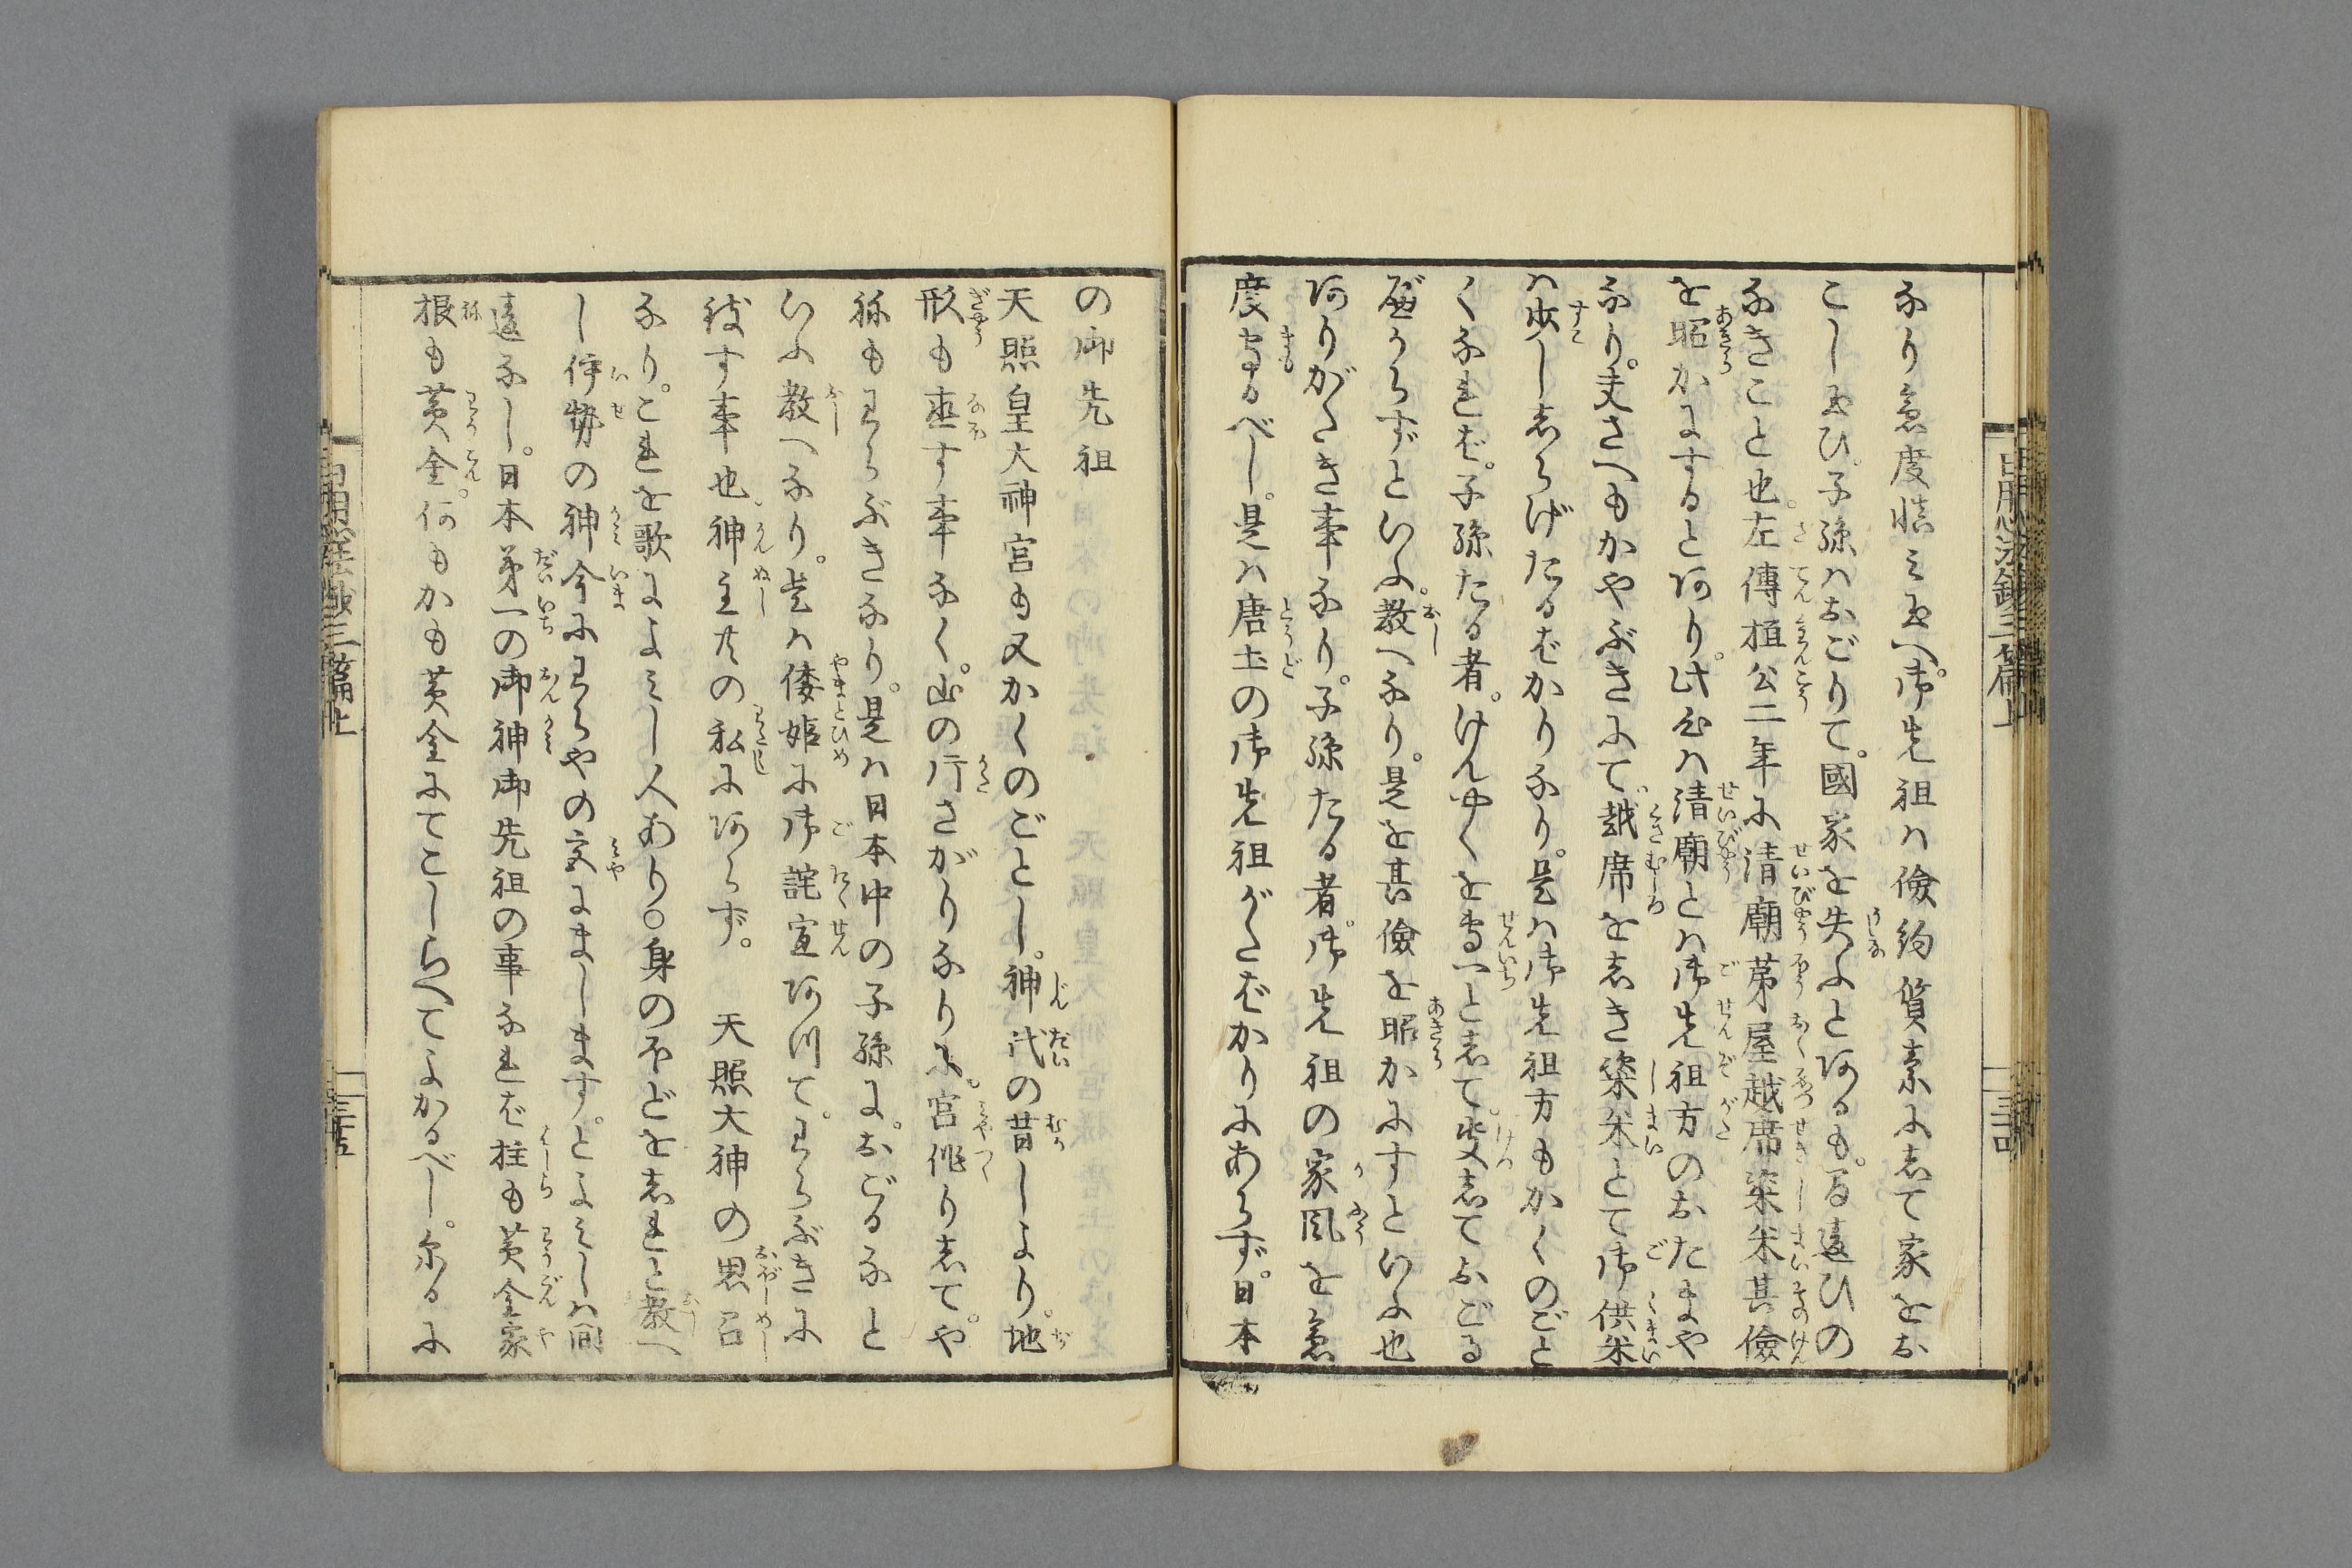 なり急度慎ミ玉へ。御先祖ハ倹約質素にして家をお
こし玉ひ。子孫ハおごりて。國家を失ふとある も。間違ひの
なきこと也。左傳桓公二年に清廟茅屋越席粢米其儉
を昭かにするとあり。此心ハ清廟とハ御先祖方のおたまや
なり。夫さへもかやぶきにて。越席をしき粢米とて御供米
ハ少ししらげたるばかりなり。是ハ御先祖方もかくのごと
くなれば。子孫たる者。けんやくを専一として。決しておごる
べからずといふ。教へなり。是を其儉を昭かにすといふ也
ありがたき事なり。子孫たる者。御先祖の家風を急
度守るべし。是ハ唐土の御先祖がたばかりにあらず。日本
の御先祖
天照皇大神宮も又かくのごとし。神代の昔しより。地
形も直す事なく。山の片さがりなりに。宮作りして。や
ねもわらぶきなり。是ハ日本中の子孫に。おごるなと
いふ教へなり。是ハ倭姫に御詫宣あつて。わらぶきに
致す事也。神主共の私にあらず。 天照大神の思召
なり。これを歌によミし人あり○身のほどをしれと教へ
し伊勢の神今にわらやの宮にまします。とよミしハ間
違なし。日本第一の御神御先祖の事なれば柱も黄金家
根も黄金。何もかも黄金にてこしらへてよかるべし。尓るに
三十四
三十五